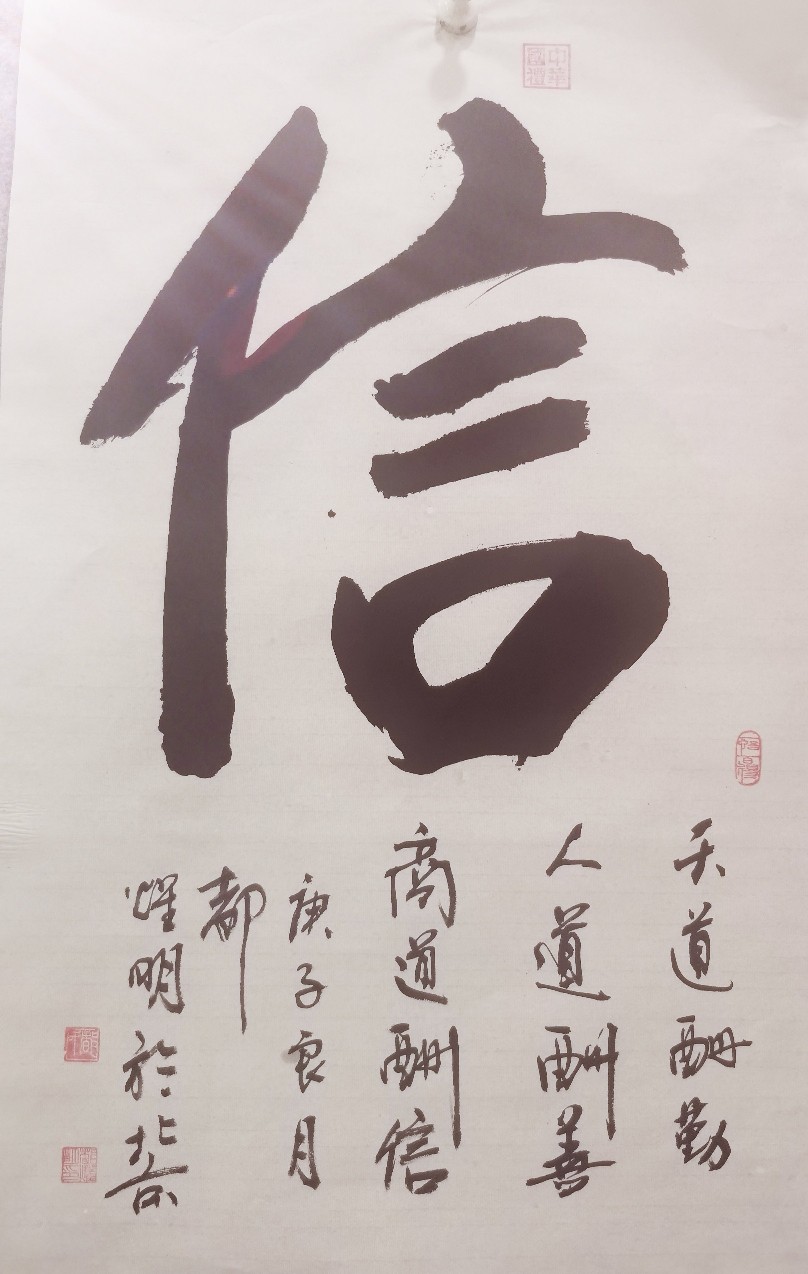 中華國禮
信
天道酬勤
人道酬善
商道酬信
庚子良月
都
耀明於北京